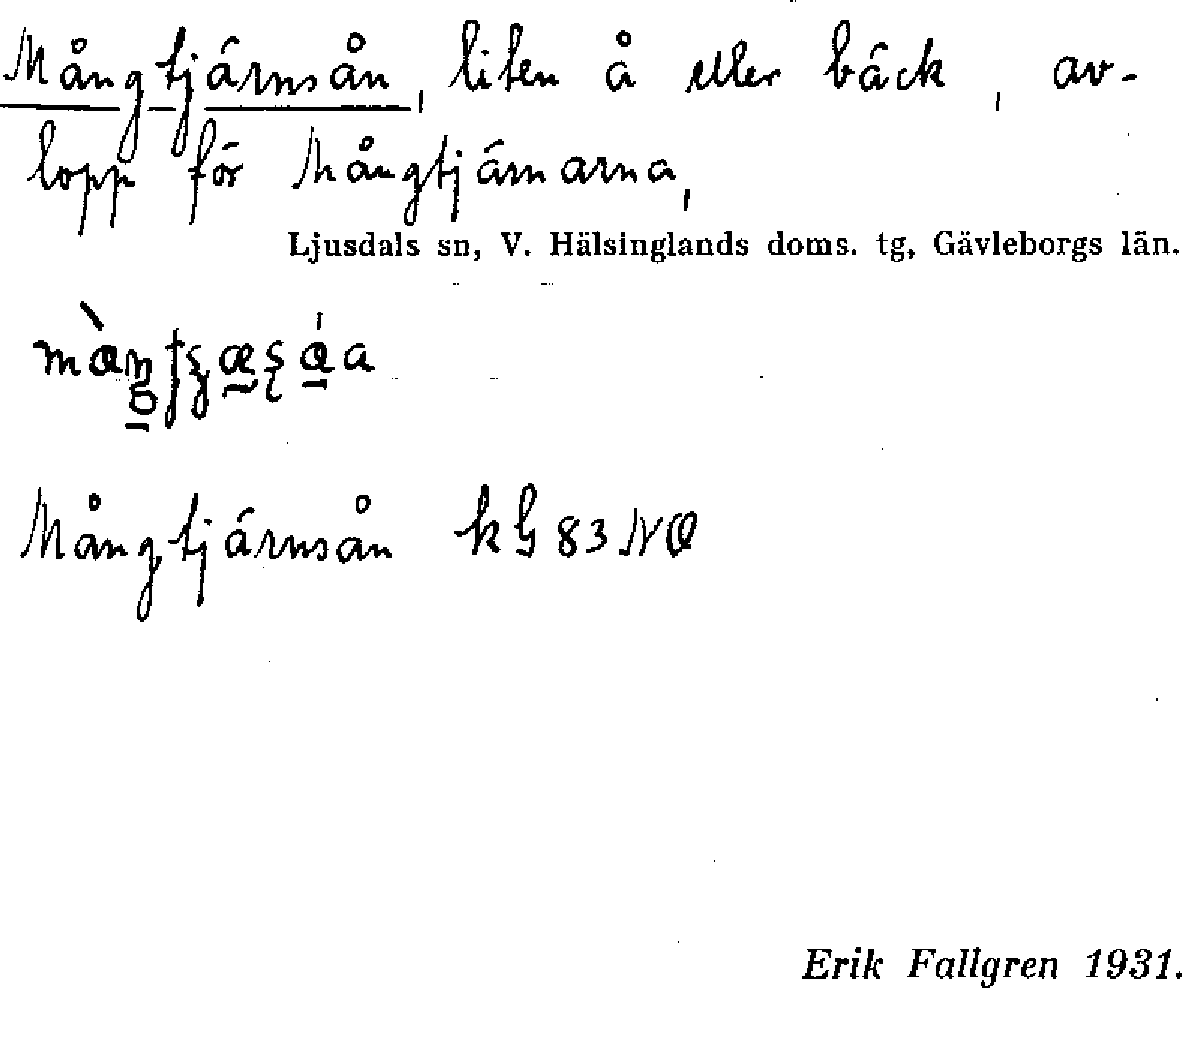 Mångtjärnsån, liten å eller bäck, av-
lopp för Mångtjärnarna,
Ljusdals sn, V. Hälsinglands doms. tg, Gävleborgs län.
Mångtjärnsån kG 83 NO
Erik Fallgren 1931.